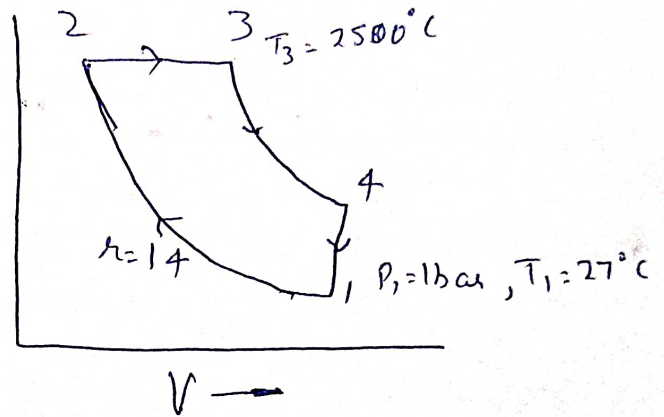 2
3 T₃ = 2500°C
4
r=14
1 P₁=1bar, T₁=27°C
V